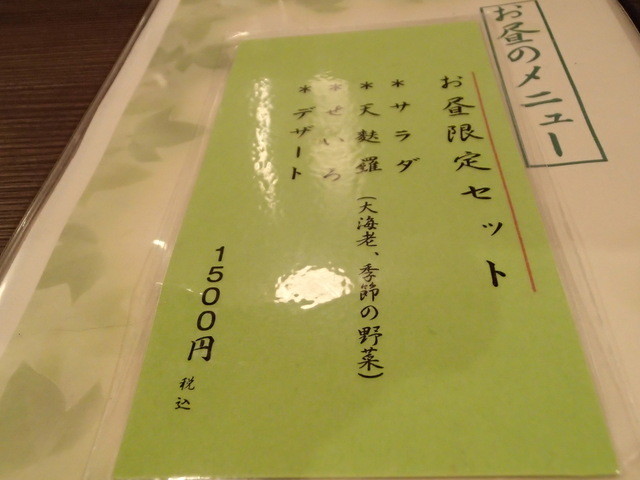 お昼のメニュー
お昼限定セット
*サラダ
*天麩羅(大海老、季節の野菜)
*せいろ
*デザート
1500円 税込